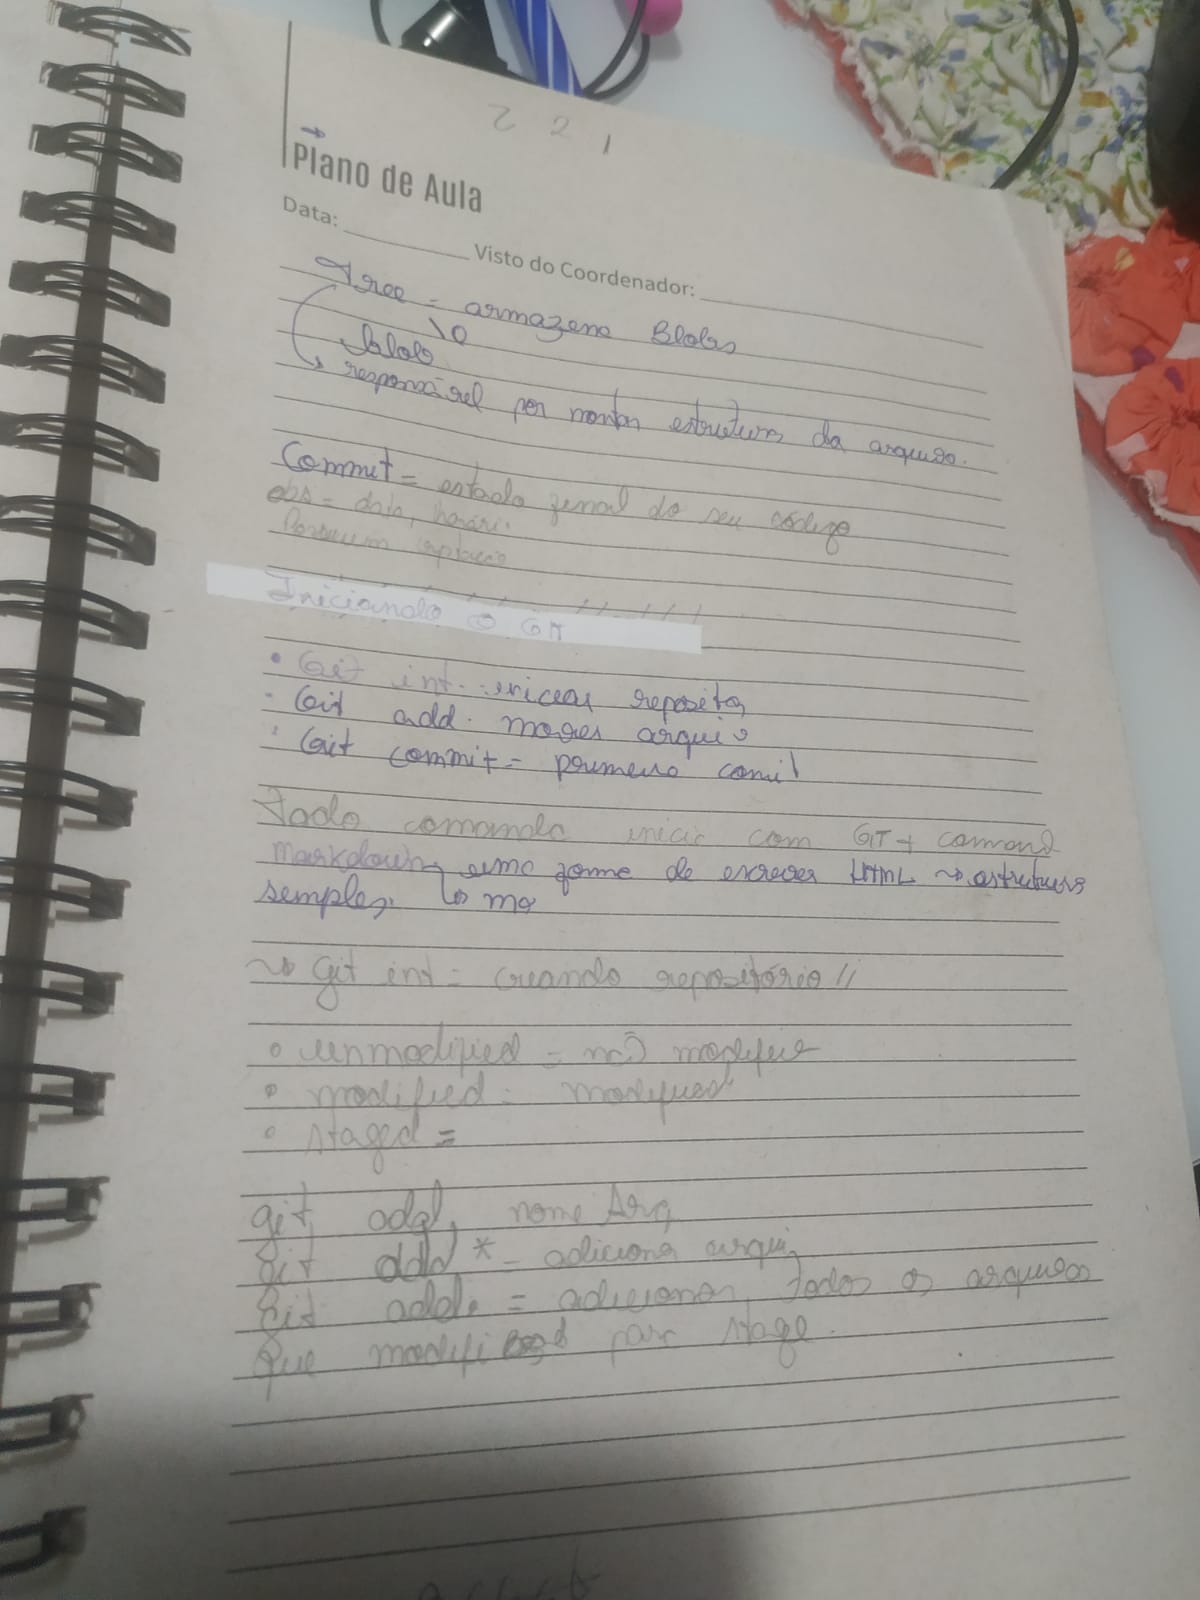 2 2 1
Plano de Aula
Data: Visto do Coordenador:
Tree = armazena Blobs
blob
responsável por montar estrutura da arquivo.
Commit = estado final do seu código
obs = data, horári.
Iniciando o GIT
• Git int. iniciar reposito
• Git add. mover arqui
• Git commit = primeiro comit
Todo comando inicia com GIT + comand
Markdown uma forma de escrever HTML → estrutura
simples,
→ git int = criando repositório //
• unmodified = não
• modified =
• staged =
git add, nome Arq
Git add * = adiciona arqui,
Git add. = adicionar todos os arquivos
Que para stage.